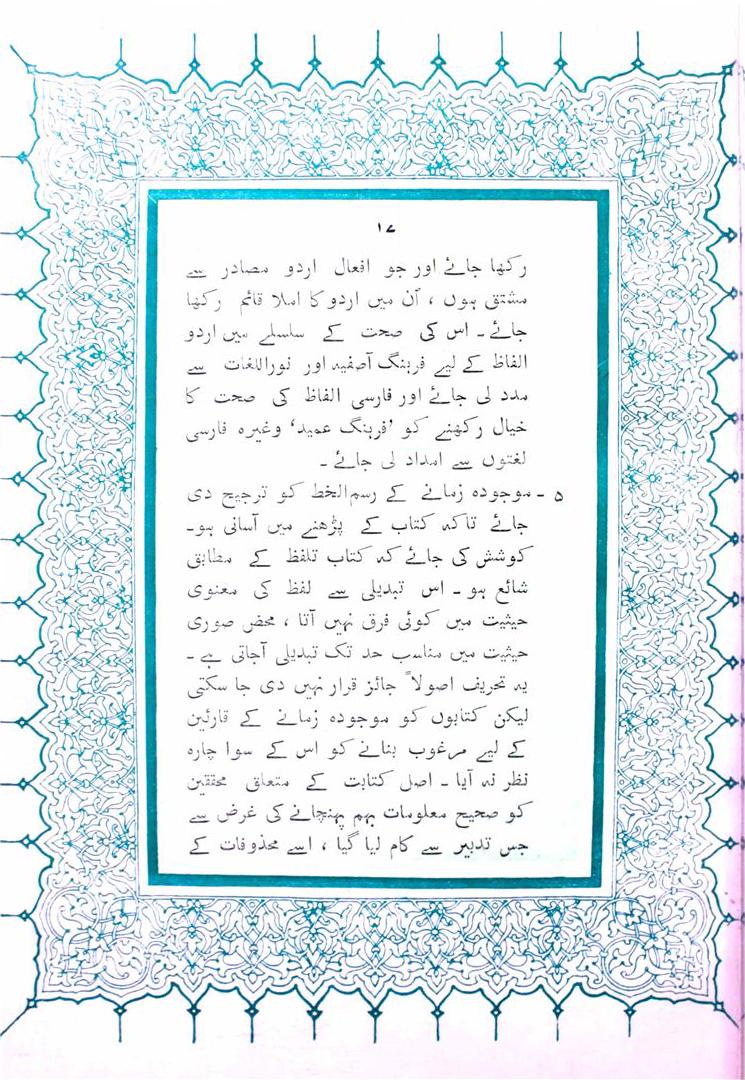 ۱۷
رکھا جائے اور جو افعال اردو مصادر سے
مشتق ہوں ، اُن میں اردو کا املا قائم رکھا
جائے ۔ اس کی صحت کے سلسلے میں اردو
الفاظ کے لیے فرہنگ آصفیہ اور نوراللغات سے
مدد لی جائے اور فارسی الفاظ کی صحت کا
خیال رکھنے کو ’فرہنگ عمید‘ وغیرہ فارسی
لغتوں سے امداد لی جائے ۔
۵ ۔ موجودہ زمانے کے رسم الخط کو ترجیح دی
جائے تاکہ کتاب کے پڑھنے میں آسانی ہو۔
کوشش کی جائے کہ کتاب تلفظ کے مطابق
شائع ہو ۔ اس تبدیلی سے لفظ کی معنوی
حیثیت میں کوئی فرق نہیں آتا ، محض صوری
حیثیت میں مناسب حد تک تبدیلی آجاتی ہے ۔
یہ تحریف اصولاً جائز قرار نہیں دی جا سکتی
لیکن کتابوں کو موجودہ زمانے کے قارئین
کے لیے مرغوب بنانے کو اس کے سوا چارہ
نظر نہ آیا ۔ اصل کتابت کے متعلق محققین
کو صحیح معلومات بہم پہنچانے کی غرض سے
جس تدبیر سے کام لیا گیا ، اسے محذوفات کے